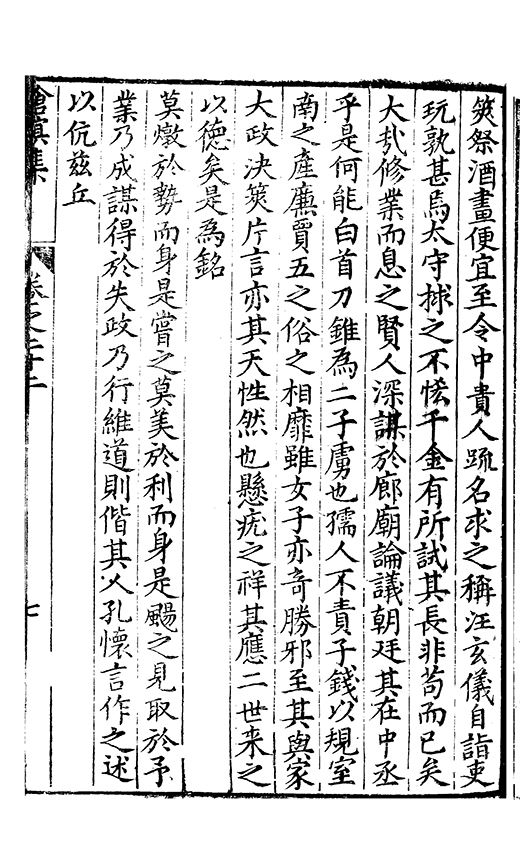 筴祭酒畫便宜至令中貴人䟽名求之稱汪玄儀自詣吏
玩孰甚焉太守捄之不恡千金有所試其長非苟而已矣
大㢤修業而息之賢人深謀於廊廟論議朝廷其在中丞
乎是何能白首刀錐為二子虜也孺人不責子錢以規室
南之產廉賈五之俗之相靡雖女子亦竒勝邪至其與家
大政决筴片言亦其天性然也懸疣之祥其應二世来之
以德矣是為銘
莫燉於勢而身是嘗之莫美於利而身是颺之見取於予
業乃成謀得於失政乃行維道則偕其乂孔懷言作之述
以伉兹丘
滄溟集
卷之二十二
七